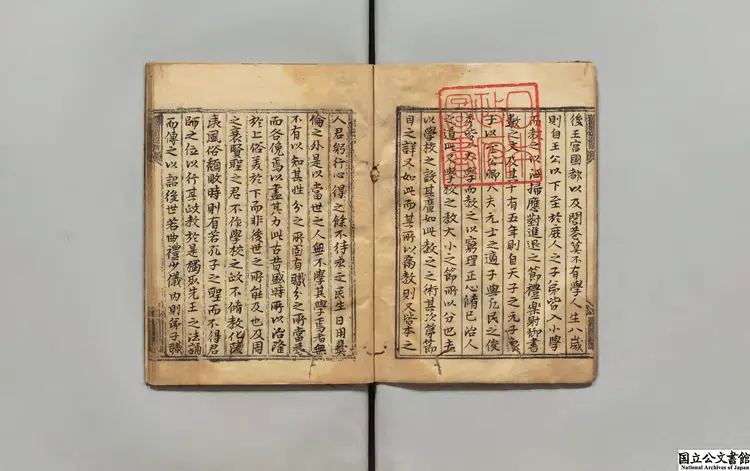 後王宮國都以及閭巷莫不有學人生八歲
則自王公以下至於庶人之子弟皆入小學
而教之以洒掃應對進退之節禮樂射御書
數之文及其十有五年則自天子之元子衆
子以至公卿大夫元士之適子與凡民之俊
秀皆入大學而教之以窮理正心脩己治人
之道此又學校之教大小之節所以分也夫
以學校之設其廣如此教之之術其次第節
目之詳又如此而其所以爲教則又皆本之
人君躬行心得之餘不待求之民生日用彝
倫之外是以當世之人無不學其學焉者無
不有以知其性分之所固有職分之所當爲
而各俛焉以盡其力此古昔盛時所以治隆
於上俗美於下而非後世之所能及也及周
之衰賢聖之君不作學校之政不脩教化陵
夷風俗頹敗時則有若孔子之聖而不得君
師之位以行其政教於是獨取先王之法誦
而傳之以詔後世若曲禮少儀内則弟子職
国立公文書館
National Archives of Japan